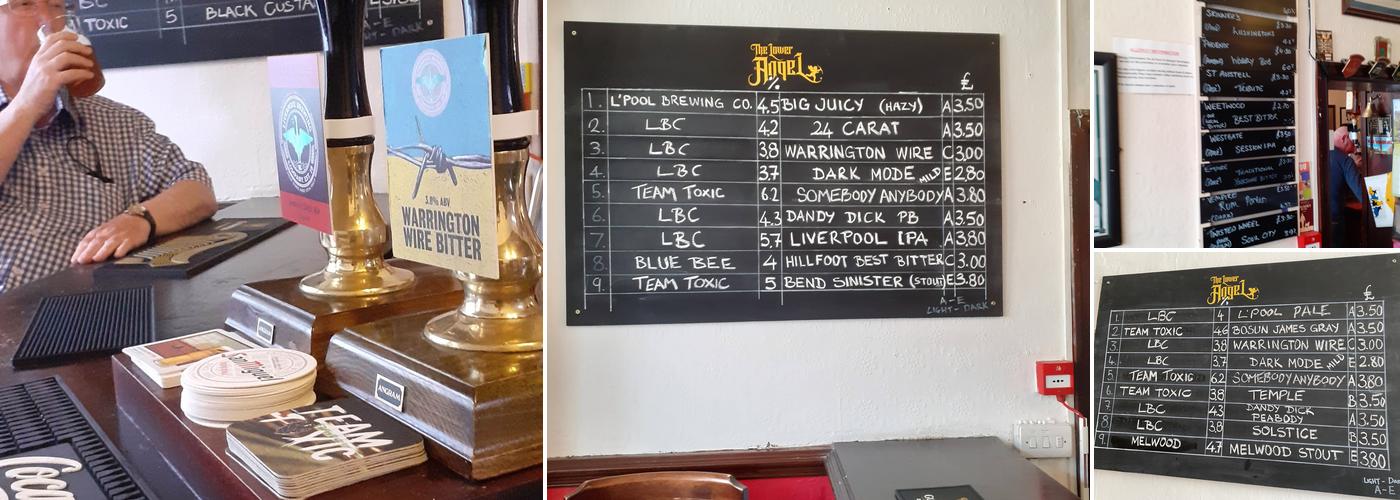 BC
TOXIC 5 BLACK CUSTA
A-E
3.8% ABV
WARRINGTON
WIRE BITTER
ANGRAM
ANGRAM
San Miguel
TEAM
TOXIC
Coca
The Lower
Angel
% £
1. L'POOL BREWING CO. 4.5 BIG JUICY (HAZY) A 3.50
2. LBC 4.2 24 CARAT A 3.50
3. LBC 3.8 WARRINGTON WIRE C 3.00
4. LBC 3.7 DARK MODE MILD E 2.80
5. TEAM TOXIC 6.2 SOMEBODYANYBODY A 3.80
6. LBC 4.3 DANDY DICK PB A 3.50
7. LBC 5.7 LIVERPOOL IPA A 3.80
8. BLUE BEE 4 HILLFOOT BEST BITTER C 3.00
9. TEAM TOXIC 5 BEND SINISTER (STOUT) E 3.80
A-E
LIGHT - DARK
SKINNER'S
LUSHINGTONS
PHOENIX
WOBBLY BOB
ST AUSTELL
TRIBUTE
WEETWOOD £2.70
BEST BITTER
WESTGATE £3.50
SESSION IPA
EMPIRE TRADITIONAL
YORKSHIRE BITTER
TEMPTED
RUM PORTER
TWISTED WHEEL
SOUR CITY
The Lower
Angel
% £
1. LBC 4 L'POOL PALE A 3.50
2. TEAM TOXIC 4.6 BOSUN JAMES GRAY A 3.50
3. LBC 3.8 WARRINGTON WIRE C 3.00
4. LBC 3.7 DARK MODE MILD E 2.80
5. TEAM TOXIC 6.2 SOMEBODYANYBODY A 3.80
6. TEAM TOXIC 3.8 TEMPLE B 3.50
7. LBC 4.3 DANDY DICK PEABODY A 3.50
8. LBC 3.8 SOLSTICE B 3.50
9. MELWOOD 4.7 MELWOOD STOUT E 3.80
LIGHT - D
A-E